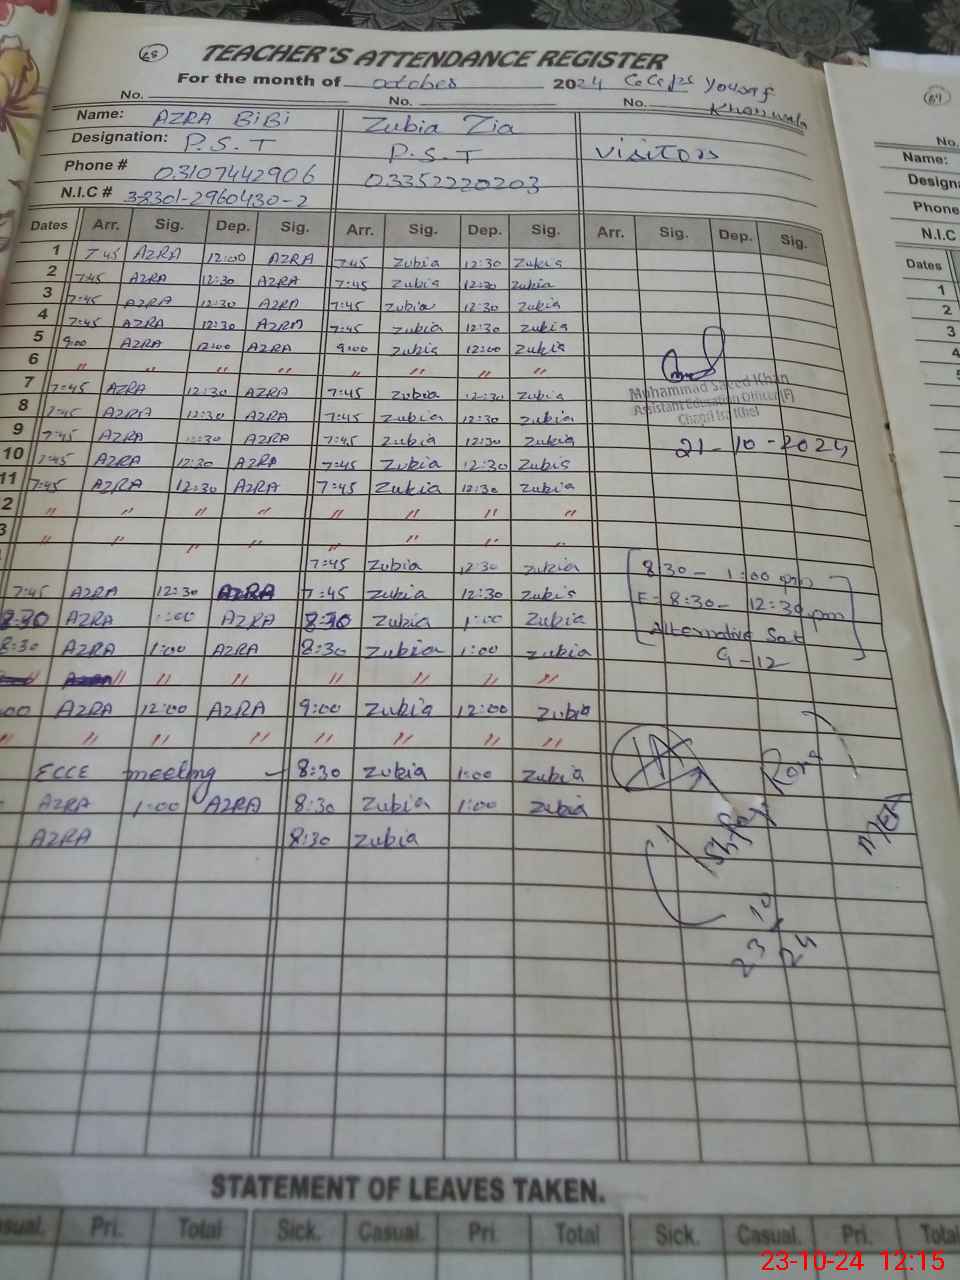 68
TEACHER'S ATTENDANCE REGISTER
For the month of october 2024 Yousaf
No. No. No. Khanwala
Name: AZRA BiBi Zubia Zia
Designation: P.S.T P.S.T visitors
Phone # 03107442906 03352220203
N.I.C # 38301-2960430-2
Dates Arr. Sig. Dep. Sig. Arr. Sig. Dep. Sig. Arr. Sig. Dep. Sig.
1 7:45 AZRA 12:00 AZRA 7:45 Zubia 12:30 Zubia
2 7:45 AZRA 12:30 AZRA 7:45 Zubia 12:30 Zubia
3 7:45 AZRA 12:30 AZRA 7:45 Zubia 12:30 Zubia
4 7:45 AZRA 12:30 AZRA 7:45 Zubia 12:30 Zubia
5 9:00 AZRA 12:00 AZRA 9:00 Zubia 12:00 Zubia
6 " " " " " " " "
7 7:45 AZRA 12:30 AZRA 7:45 Zubia 12:30 Zubia
Muhammad Saeed Khan
Assistant Education Officer (F)
8 7:45 AZRA 12:30 AZRA 7:45 Zubia 12:30 Zubia
9 7:45 AZRA 12:30 AZRA 7:45 Zubia 12:30 Zubia
21-10-2024
10 7:45 AZRA 12:30 AZRA 7:45 Zubia 12:30 Zubia
11 7:45 AZRA 12:30 AZRA 7:45 Zubia 12:30 Zubia
2 " " " " " " " "
3 " " " " " " " "
7:45 Zubia 12:30 Zubia
8:30 - 1:00 pm
7:45 AZRA 12:30 AZRA 7:45 Zubia 12:30 Zubia
F- 8:30 - 12:30 pm
8:30 AZRA 1:00 AZRA 8:30 Zubia 1:00 Zubia
Alternative Sat
8:30 AZRA 1:00 AZRA 8:30 Zubia 1:00 Zubia
9-12
" " " " " " "
00 AZRA 12:00 AZRA 9:00 Zubia 12:00 Zubia
" " " " " " " "
ECCE meeting 8:30 Zubia 1:00 Zubia
AZRA 1:00 AZRA 8:30 Zubia 1:00 Zubia
AZRA 8:30 Zubia
MEA
23 10 24
STATEMENT OF LEAVES TAKEN.
sual. Pri. Total Sick. Casual. Pri. Total Sick. Casual. Pri. Total
No.
Name:
Design
Phone
N.I.C
Dates
1
2
3
4
23-10-24 12:15